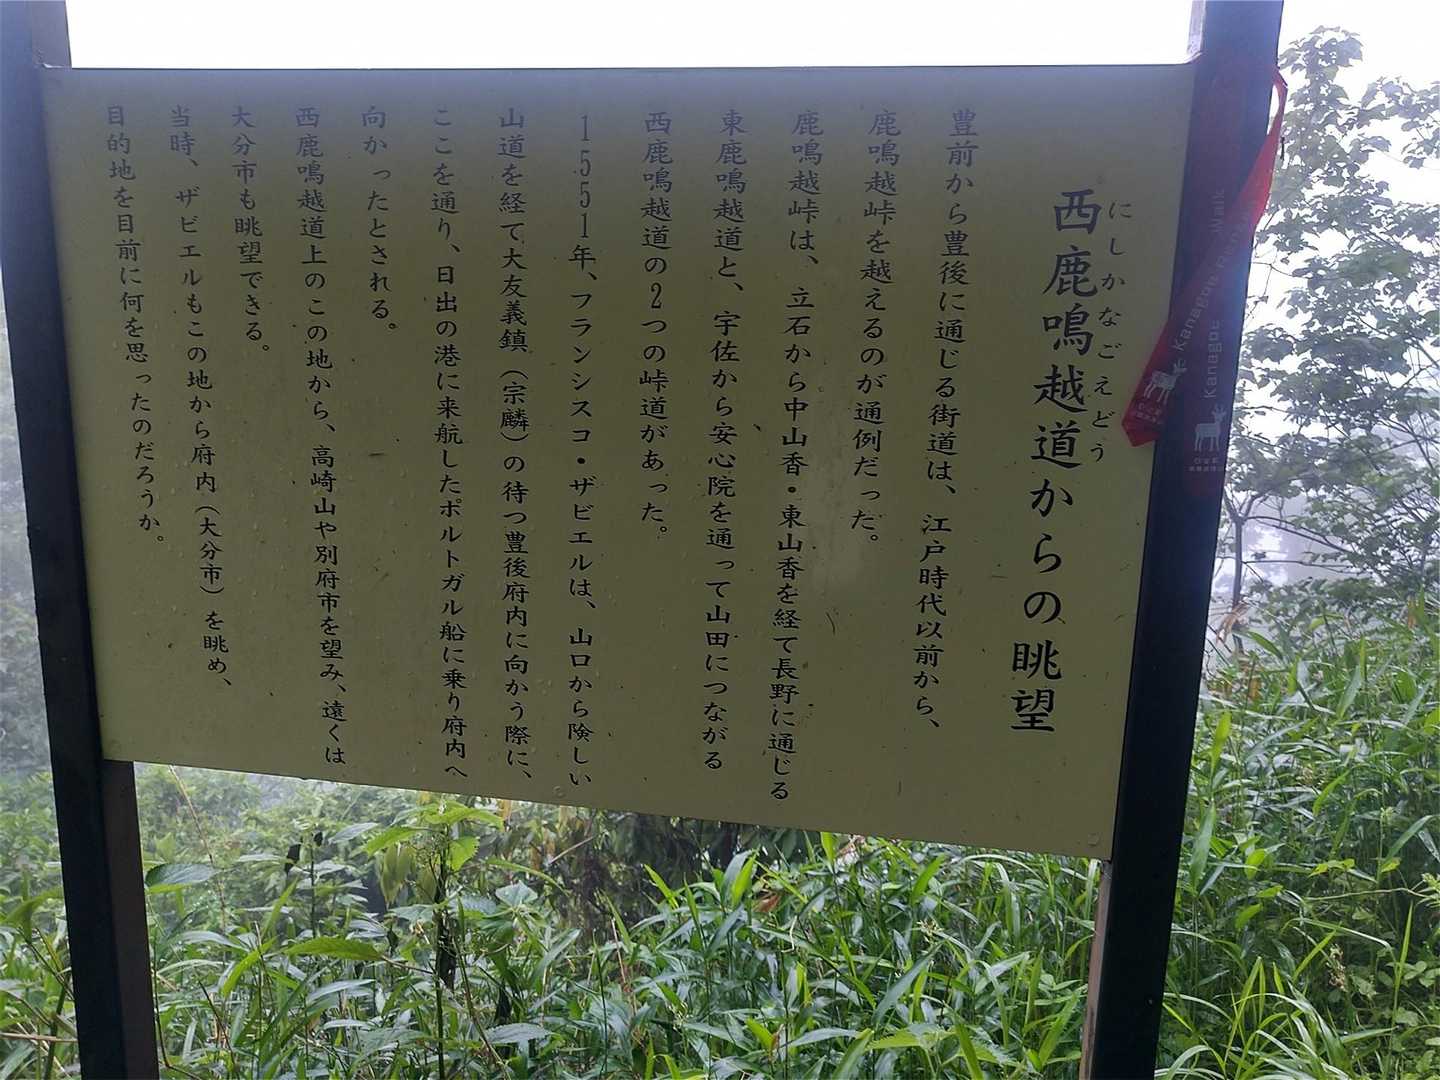 西鹿鳴越道からの眺望
にしかなごえどう
豊前から豊後に通じる街道は、江戸時代以前から、
鹿鳴越峠を越えるのが通例だった。
鹿鳴越峠は、立石から中山香・東山香を経て長野に通じる
東鹿鳴越道と、宇佐から安心院を通って山田につながる
西鹿鳴越道の2つの峠道があった。
1551年、フランシスコ・ザビエルは、山口から険しい
山道を経て大友義鎮（宗麟）の待つ豊後府内に向かう際に、
ここを通り、日出の港に来航したポルトガル船に乗り府内へ
向かったとされる。
西鹿鳴越道上のこの地から、高崎山や別府市を望み、遠くは
大分市も眺望できる。
当時、ザビエルもこの地から府内（大分市）を眺め、
目的地を目前に何を思ったのだろうか。
Kanagoe
Walk
Kanagoe